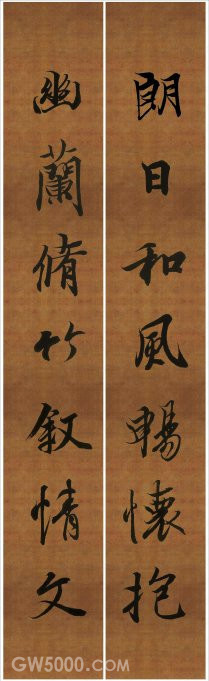 朗日和風暢懷抱
幽蘭脩竹敘情文
GW5000.com